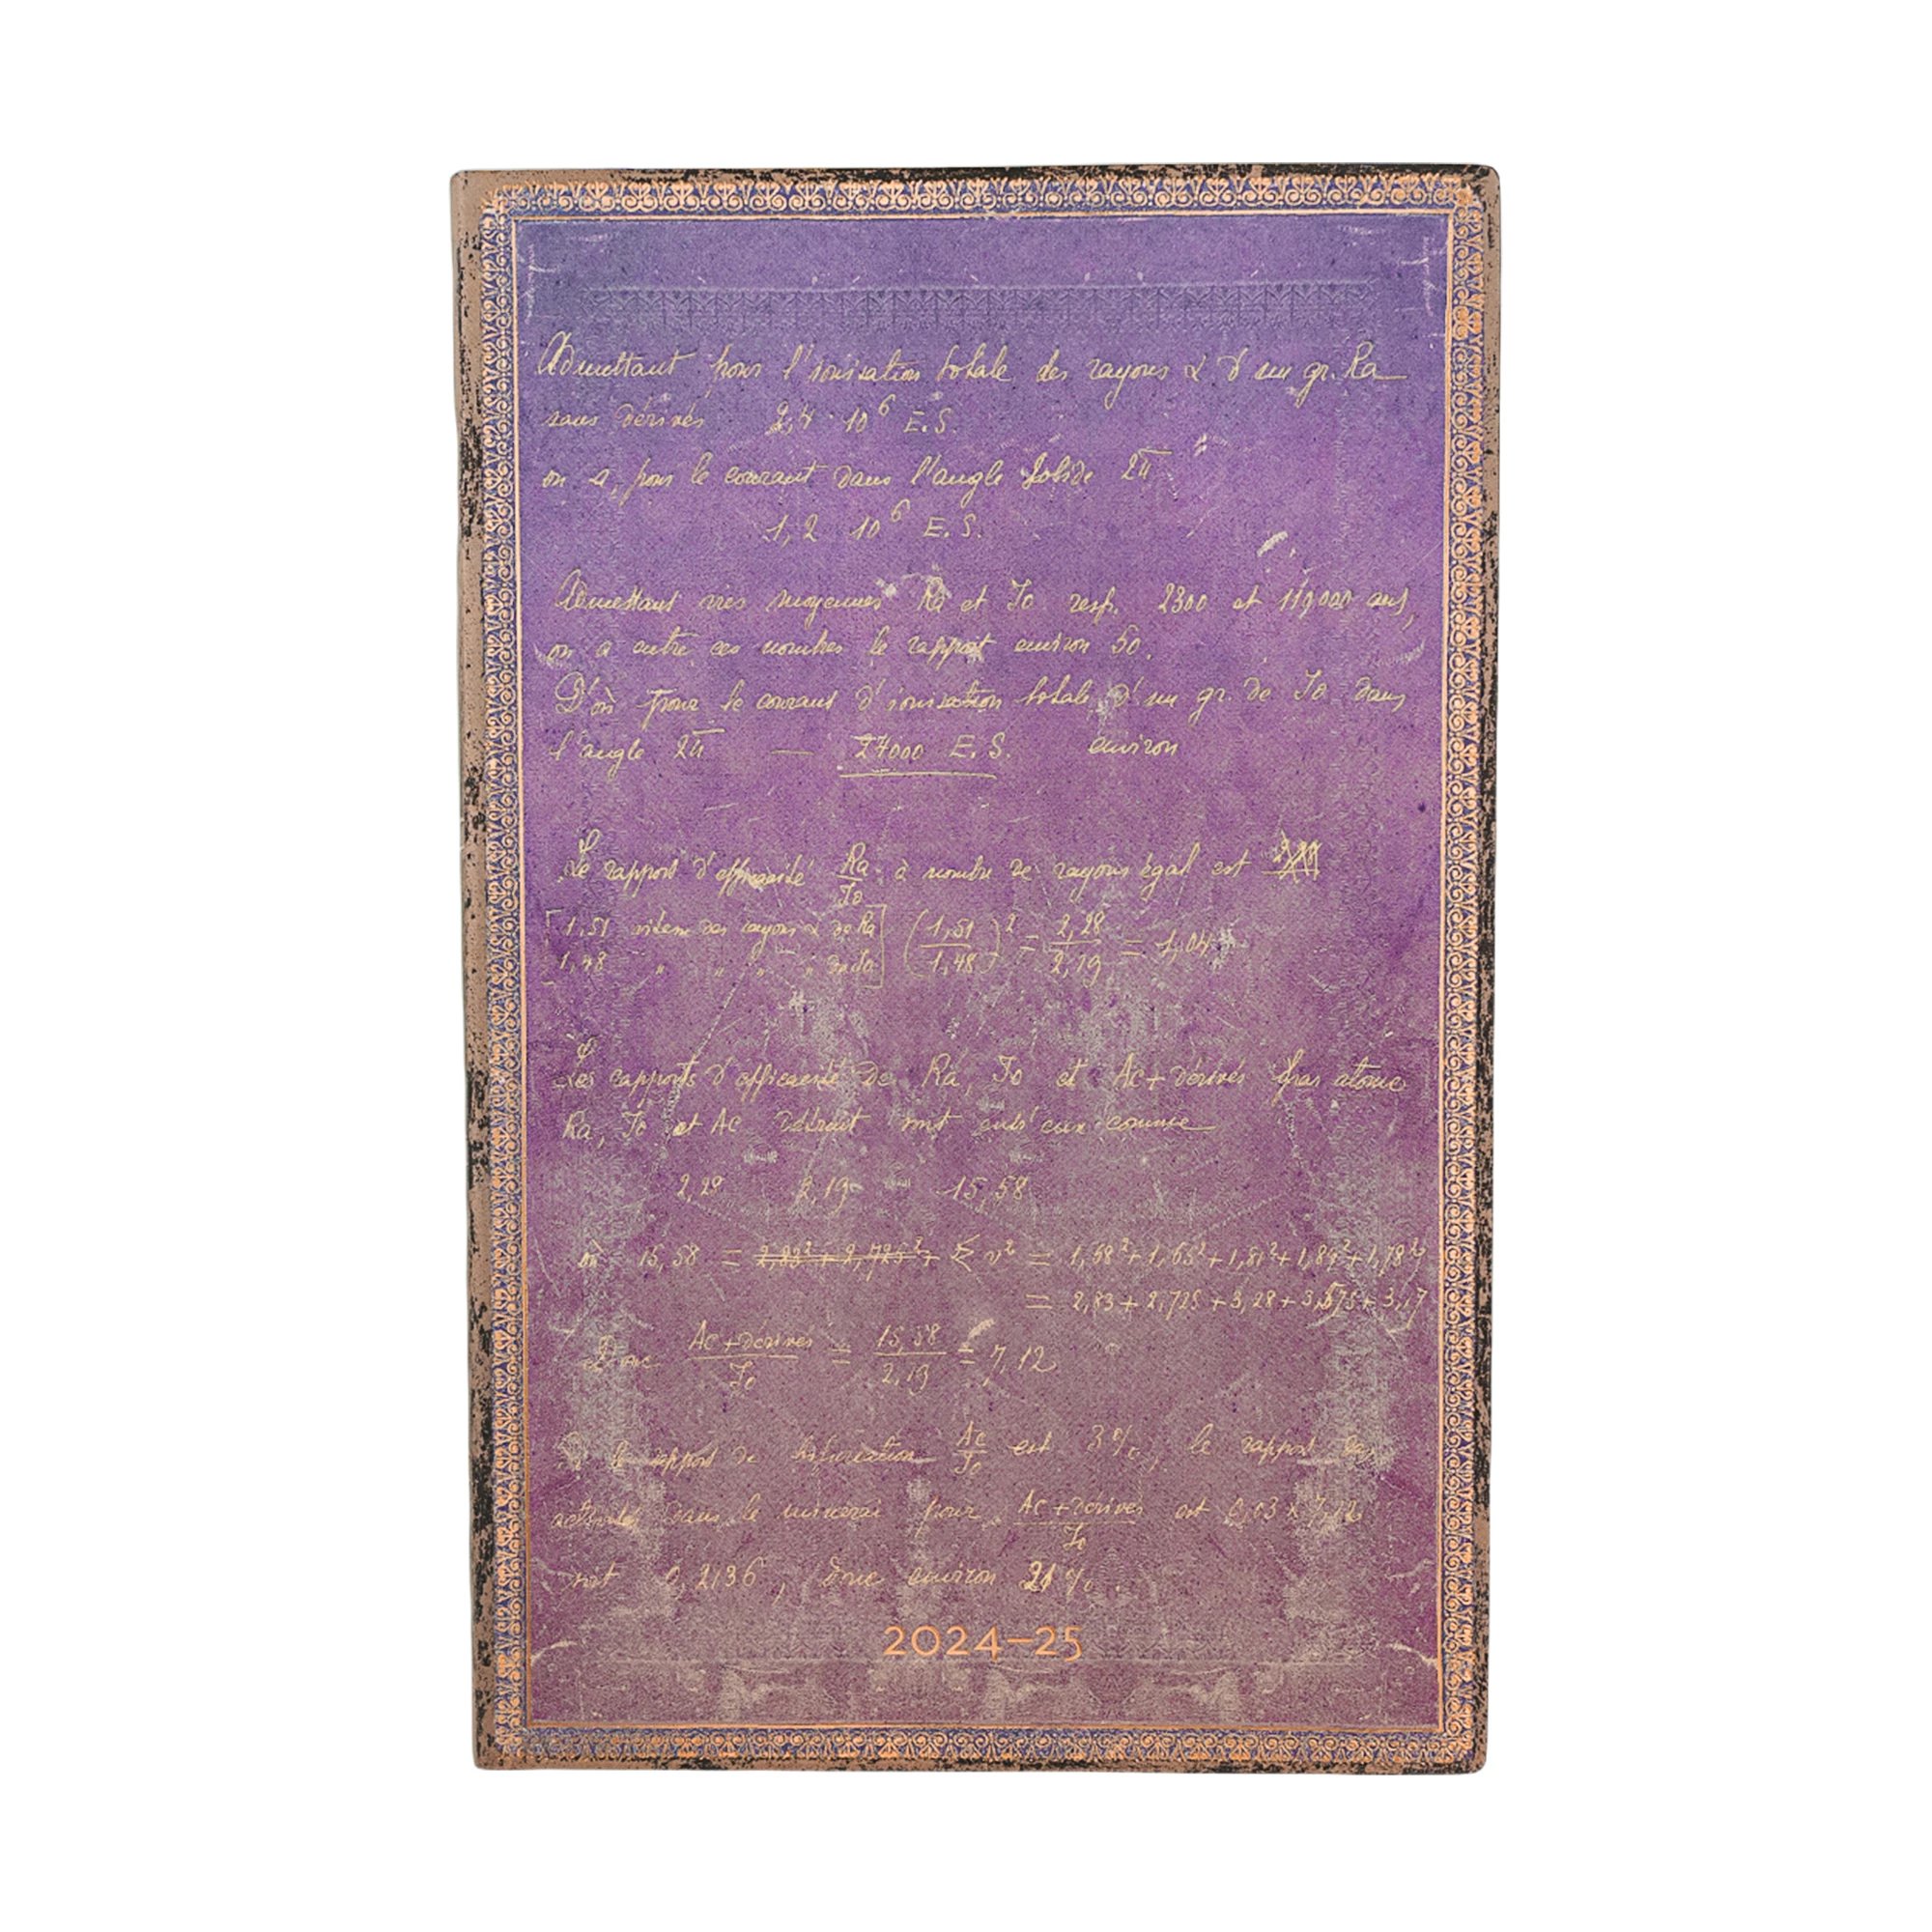 Admettant pour l'ionisation totale des rayons α d'un gr. Ra
sans dérivés 2,4 10⁶ E.S.
on a, pour le courant dans l'angle solide 2π
1,2 10⁶ E.S.
Admettant vies moyennes Ra et Io resp. 2300 et 119000 ans,
on a entre ces nombres le rapport environ 50.
D'où pour le courant d'ionisation totale d'un gr. de Io dans
l'angle 2π — 24000 E.S. environ
Le rapport d'efficacité Ra/Io à nombre de rayons égal est
[1,51 vitesse des rayons α de Ra] (1,51/1,48)² = 2,28/2,19 = 1,04
1,48 " " " " de Io
Les rapports d'efficacité de Ra, Io et Ac+dérivés par atome
Ra, Io et Ac détruit sont entr'eux comme
2,29 2,19 15,58
où 15,58 = 2,83² + 2,725² + Σ v² = 1,68² + 1,65² + 1,81² + 1,89² + 1,78²
= 2,83 + 2,725 + 3,28 + 3,575 + 3,17
Donc Ac+dérivés/Io = 15,58/2,19 = 7,12
Si le rapport de bifurcation Ac/Io est 3%, le rapport des
activités dans le minerai pour Ac+dérivés/Io est 0,03 × 7,12
soit 0,2136, donc environ 21%.
2024–25